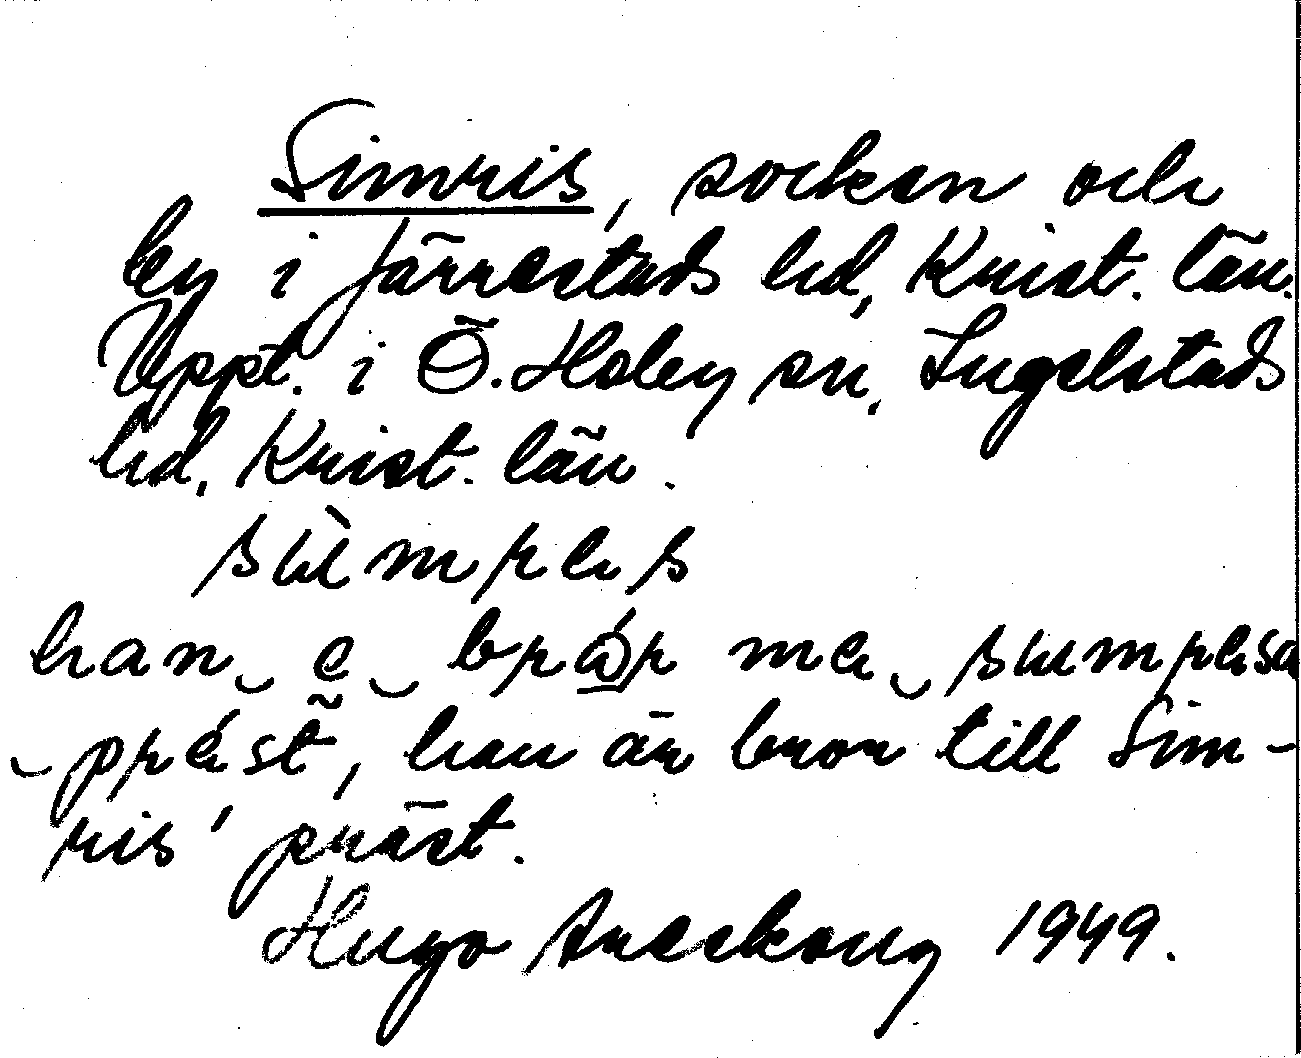 Simris, socken och
by i Järrestads hd, Krist. län.
Uppt. i Ö. Hoby sn, Ingelstads
hd, Krist. län.
han e
me
han är bror till Sim-
ris' präst.
Hugo Areskoug 1949.